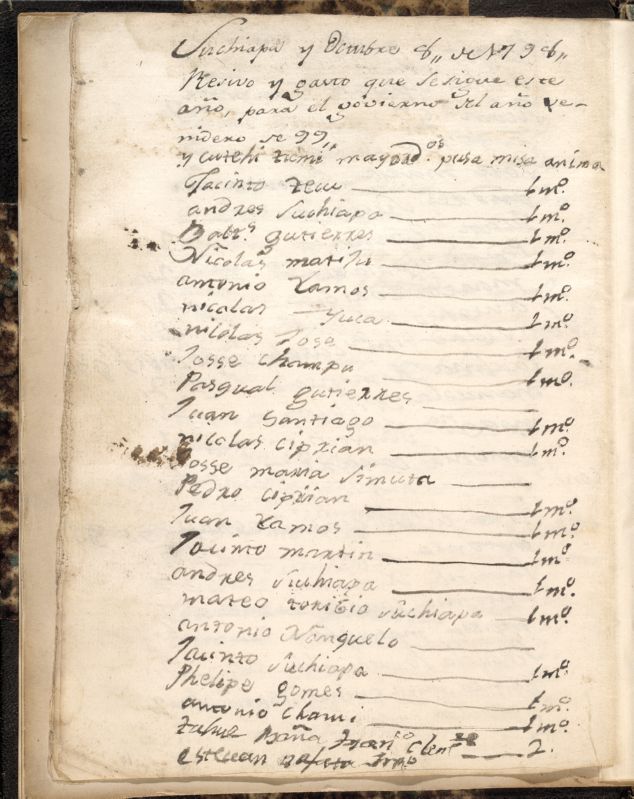 Suchiapa y Octubre 8,, de 1798,,
Resivo y gasto que sesigue este
año, para el govierno del año ve-
nidero de 99,,
y cutehi nimi mayord.os pusa misa anima
Jacinto teu 1 mº.
andres Suchiapa 1 mº.
Balt.s gutierres 1 mº.
Nicolas matilu 1 mº.
antonio Ramos 1 mº.
nicolas Yuca 1 mº.
nicolas Jose 1 mº.
Josse Champu 1 mº.
Pasqual gutierres
Juan Santiago 1 mº.
nicolas ciprian 1 mº.
Josse maria Simuta
Pedro ciprian 1 mº.
Juan Ramos 1 mº.
Jacinto martin 1 mº
andres Suchiapa 1 mº.
mateo toribio suchiapa 1 mº.
antonio Nanguelo
Jacinto Suchiapa 1 mº.
Phelipe gomes 1 mº.
antonio Chami 1 mº.
2.